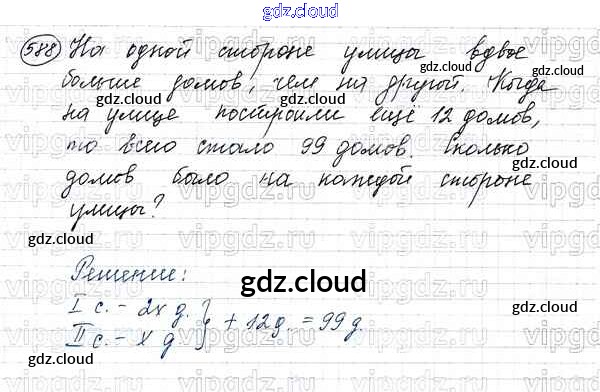 gdz.cloud
588 На одной стороне улицы вдвое
gdz.cloud
больше домов, чем на другой. Когда
gdz.cloud gdz.cloud
на улице построили ещё 12 домов,
gdz.cloud
то всего стало 99 домов. Сколько
gdz.cloud
домов было на каждой стороне
gdz.cloud
улицы?
gdz.cloud
Решение:
gdz.cloud
I с. - 2x д. } + 12 д. = 99 д.
II с. - x д
gdz.cloud
gdz.cloud
gdz.cloud